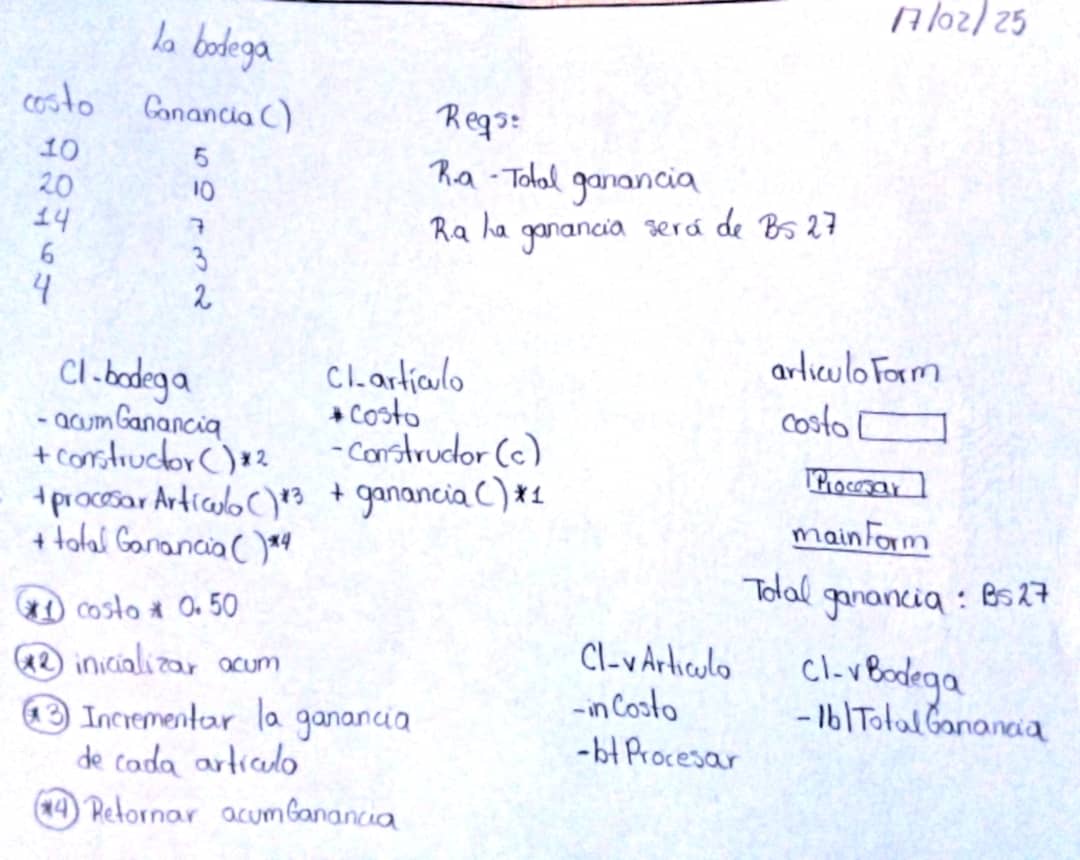 17/02/25
La bodega
costo Ganancia()
10 5
20 10
14 7
6 3
4 2
Reqs:
Ra - Total ganancia
Ra La ganancia será de Bs 27
Cl-bodega
- acumGanancia
+ constructor()*2
+ procesarArtículo()*3
+ total Ganancia()*4
Cl-artículo
+ costo
- Constructor(c)
+ ganancia()*1
articuloForm
costo
Procesar
mainForm
Total ganancia: Bs27
*1 costo * 0.50
*2 inicializar acum
*3 Incrementar la ganancia
de cada articulo
*4 Retornar acumGanancia
Cl-vArticulo
-inCosto
-btProcesar
Cl-vBodega
-lblTotalGanancia